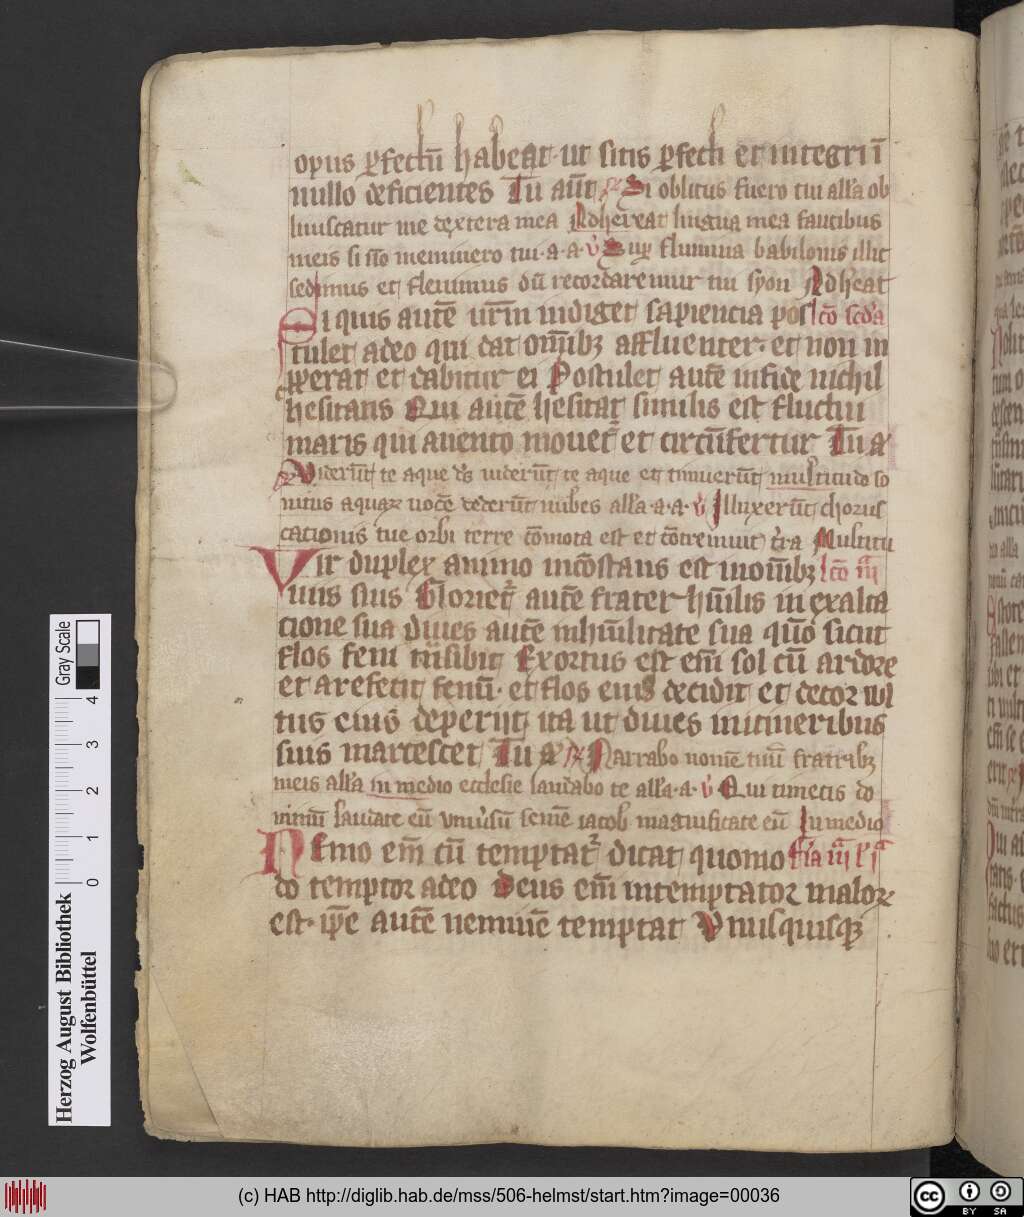 opus ꝑfectū habeat· ut sitis ꝑfecti et integri ī
nullo deficientes Tu aūt ℟ Si oblitus fuero tui alła ob
liuiscatur me dextera mea Adhereat lingua mea faucibus
meis si nō meminero tui· a· a· v̇ Suꝑ flumina babilonis illic
sedimus et fleuimus dū recordaremur tui syon Adheat
Si quis autē ur̄m indiget sapiencia pos lc̄o sc̄da
tulet adeo qui dat om̄ibꝫ affluenter· et non in
ꝓperat et dabitur ei Postulet autē infide nichil
hesitans Qui autē hesitat similis est fluctui
maris qui auento mouet᷑ et circūfertur Tu a᷑
℟ Viderūt te aque ds̄ uiderūt te aque et timuerūt multitudo so
nitus aquaꝝ uocē dederūt nubes alła· a· a· v̇ Illuxerūt chorus
cationis tue orbi terre cōmota est et cōtremuit t᷑ra Multitu
Vir duplex animo incōstans est inom̄ibꝫ lc̄o iii
uiis suis Gloriet᷑ autē frater hūilis in exalta
cione sua diues autē inhūilitate sua quō sicut
flos feni tn̄sibit Exortus est em̄ sol cū ardore
et arefecit fenū· et flos eius decidit et decor uul
tus eius deperiit ita ut diues initineribus
suis marcescet Tu a᷑ ℟ Narrabo nomē tuū fratribꝫ
meis alła in medio ecclesie laudabo te alła· a· v̇ Qui timetis do
minū laudate eū vniu᷑sū semē iacob magnificate eū In medio
Nemo em̄ cū temptat᷑ dicat quomo fr̄ia iii lc̄ i
do temptor adeo Deus em̄ intemptator maloꝝ
est· ip̄e autē neminē temptat Vnusquisqꝫ
Herzog August Bibliothek
Wolfenbüttel
Gray Scale
0 1 2 3 4
(c) HAB http://diglib.hab.de/mss/506-helmst/start.htm?image=00036
cc BY SA